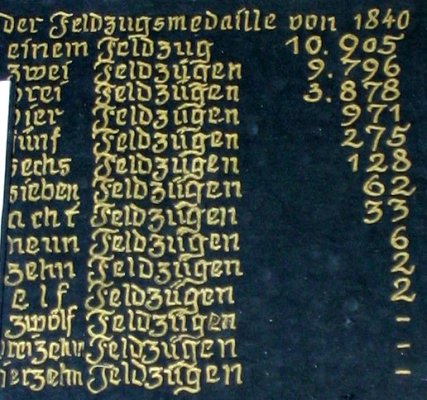 der Feldzugsmedaille von 1840
einem Feldzug 10.905
zwei Feldzügen 9.796
drei Feldzügen 3.878
vier Feldzügen 971
fünf Feldzügen 275
sechs Feldzügen 128
sieben Feldzügen 62
acht Feldzügen 33
neun Feldzügen 6
zehn Feldzügen 2
elf Feldzügen 2
zwölf Feldzügen -
dreizehn Feldzügen -
vierzehn Feldzügen -